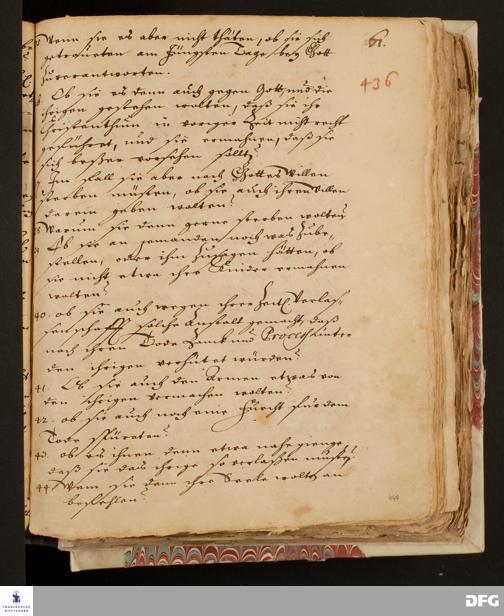 61.
436
Wenn sie es aber nicht thäten, ob sie sich
getraueten am Jüngsten Tage bey Gott
zu verantworten.
Ob sie es denn auch gegen Gott, und die
ihrigen gestehen wolten, daß sie ihr
Christenthum in voriger Zeit nicht recht
geführet, und sie ermahnen, daß sie
sich beßer vorsehen solten
Im Fall sie aber nach Gottes Willen
sterben müsten, ob sie auch ihren Willen
darein geben wolten?
Warum sie denn gerne sterben wolten
Ob sie an jemanden noch was zube-
stellen, oder ihm zusagen hätten, ob
sie nicht etwa ihre Kinder ermahnen
wolten?
40. ob sie auch wegen ihrer Zeitl. Verlas,
senschafft solche Anstalt gemacht, daß
nach ihren Tode Zanck und Process unter
den ihrigen verhütet würden?
41. Ob sie auch den Armen etwas von
den ihrigen vermachen wolten?
42. ob sie auch noch eine Furcht für dem
Tode spüreten?
43. ob es ihnen denn etwa nahe gienge,
daß sie das ihrige so verlaßen müsten
44. Wem sie denn ihre Seele wolten an
befehlen?
FRANCKESCHE
STIFTUNGEN
DFG